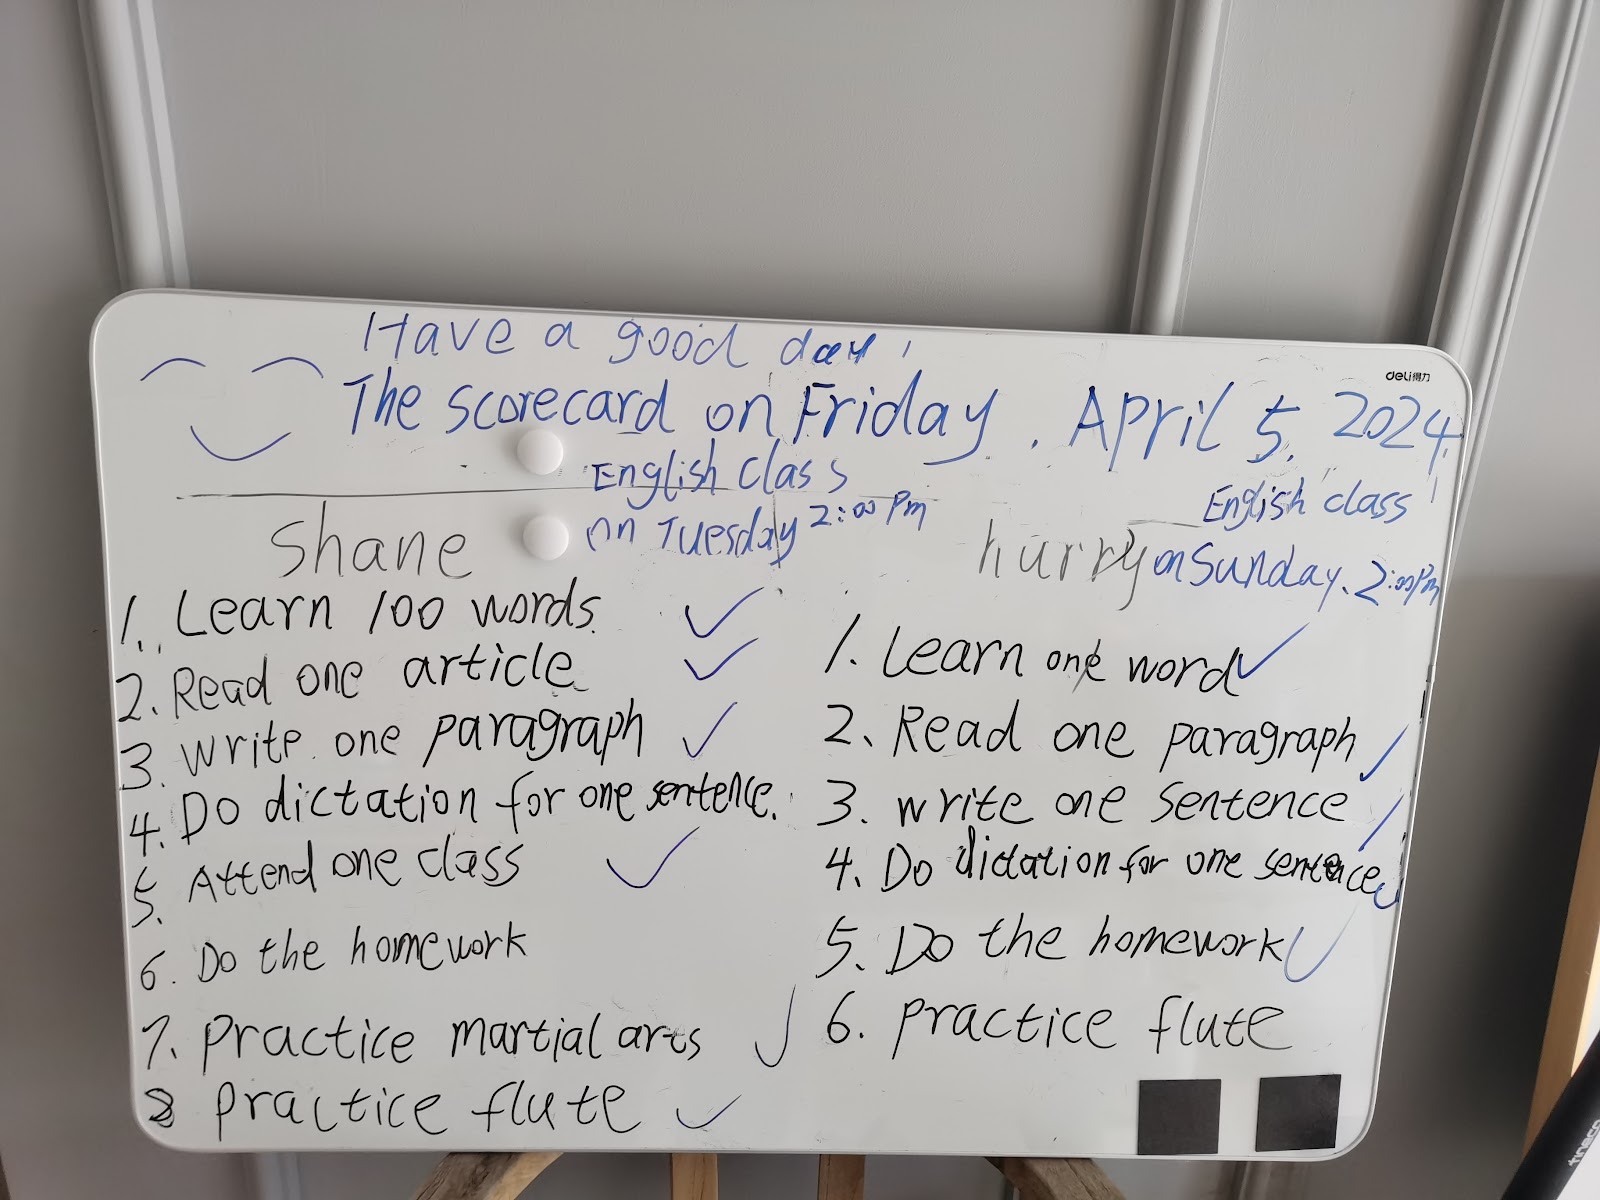 Have a good day!
deli得力
The scorecard on Friday. April 5, 2024.
English class
on Tuesday 2:00 Pm
Shane
1. Learn 100 words.
2. Read one article
3. write one paragraph
4. Do dictation for one sentence.
5. Attend one class
6. Do the homework
7. practice martial arts
8 practice flute
English class
on Sunday. 2:00 Pm
hurry
1. Learn one word
2. Read one paragraph
3. write one sentence
4. Do dictation for one sentence
5. Do the homework
6. practice flute
tineco